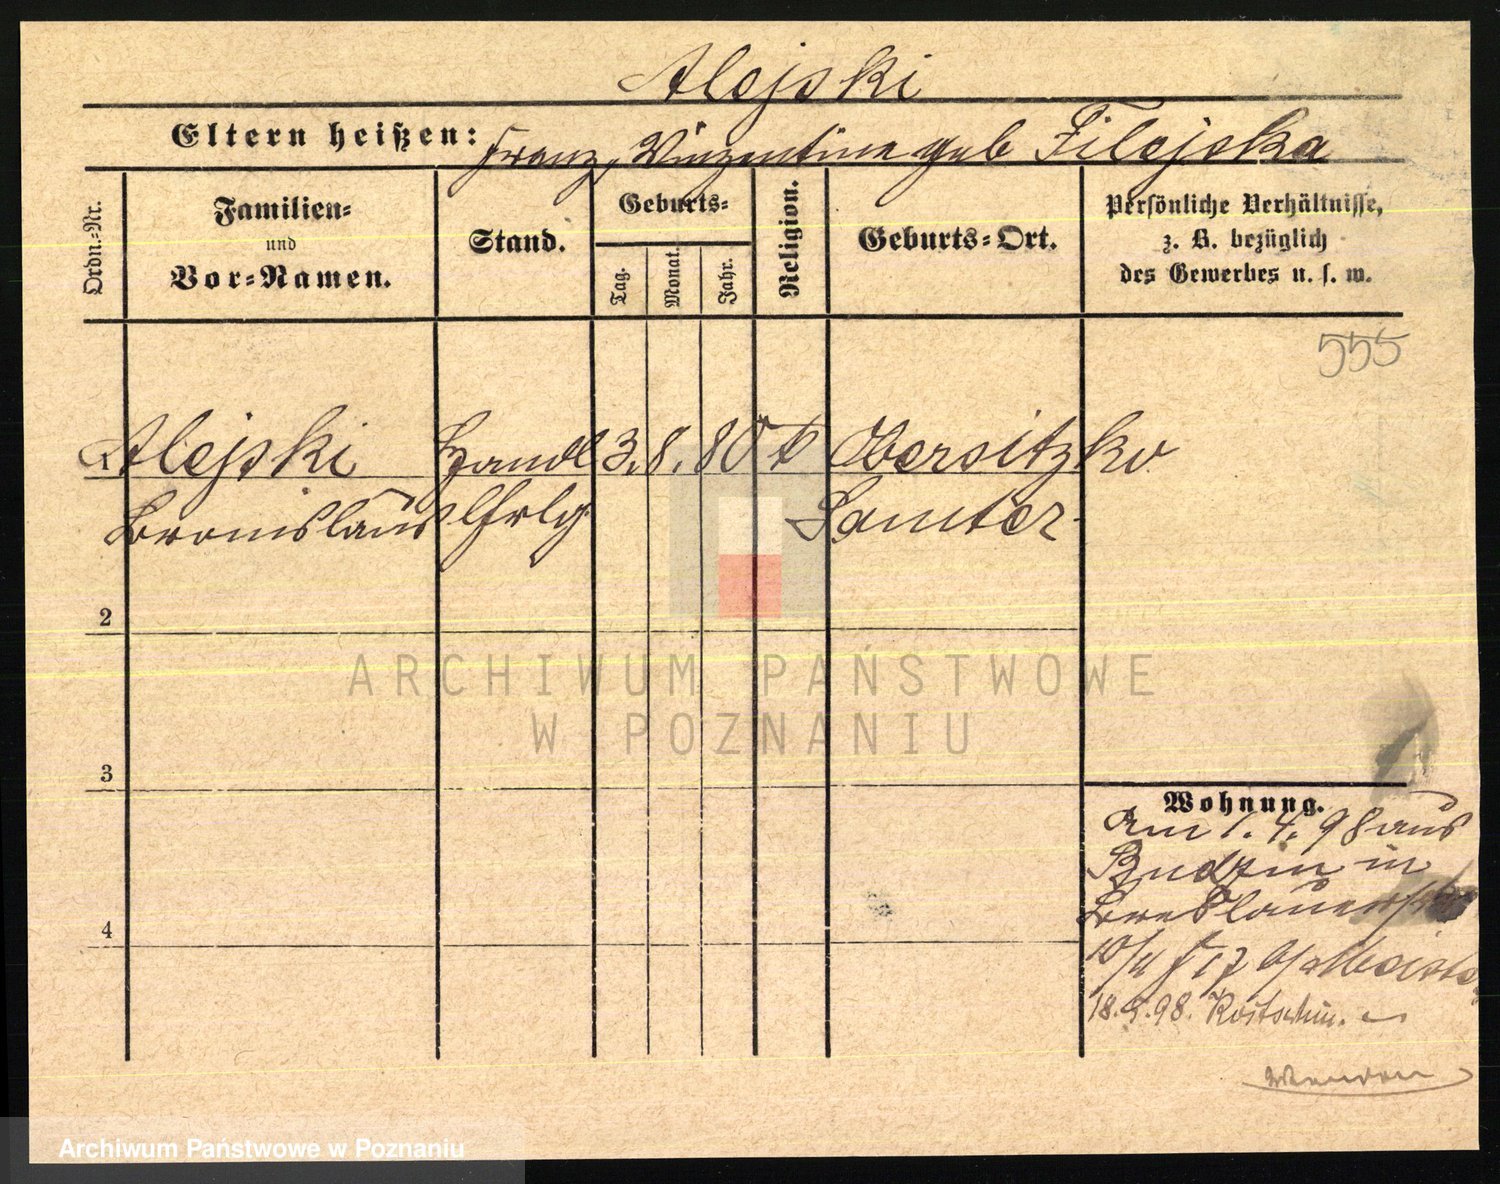 Alejski
Eltern heißen: Franz, Vinzentine geb Filejska
Ordn.-Nr.
Familien-
und
Vor-Namen.
Stand.
Geburts-
Tag.
Monat.
Jahr.
Religion.
Geburts-Ort.
Persönliche Verhältnisse,
z. B. bezüglich
des Gewerbes u. s. w.
555
1 Alejski Handl 3. 8. 80 k Obersitzko
Bronislaus Lehrlg. Samter
2
3
4
Wohnung.
am 1. 4. 98 aus
Budzin in
Breslauerstr
10/4 17
18.5.98. Kostschin.
ARCHIWUM PAŃSTWOWE
W POZNANIU
Archiwum Państwowe w Poznaniu